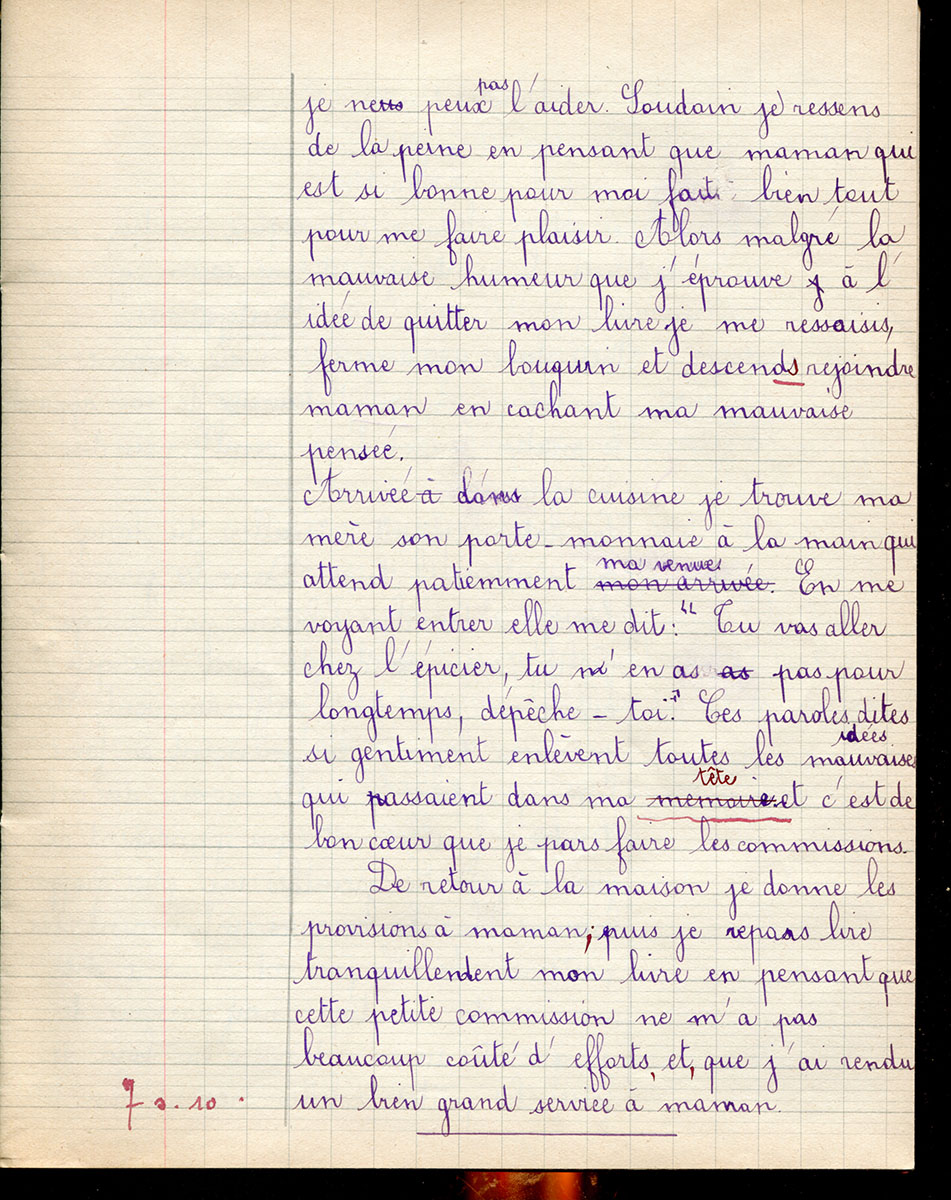 je ne peux pas l'aider. Soudain je ressens
de la peine en pensant que maman qui
est si bonne pour moi fait bien tout
pour me faire plaisir. Alors malgré la
mauvaise humeur que j'éprouve à l'
idée de quitter mon livre je me ressaisis,
ferme mon bouquin et descends rejoindre
maman en cachant ma mauvaise
pensée.
Arrivée à dans la cuisine je trouve ma
mère son porte-monnaie à la main qui
attend patiemment mon arrivée ma venue. En me
voyant entrer elle me dit: "Tu vas aller
chez l'épicier, tu n'en as as pas pour
longtemps, dépêche-toi." Ces paroles dites
si gentiment enlèvent toutes les mauvaises idées
qui passaient dans ma mémoire tête et c'est de
bon cœur que je pars faire les commissions.
De retour à la maison je donne les
provisions à maman; puis je repars lire
tranquillement mon livre en pensant que
cette petite commission ne m'a pas
beaucoup coûté d'efforts, et, que j'ai rendu
un bien grand service à maman.
7 s. 10.